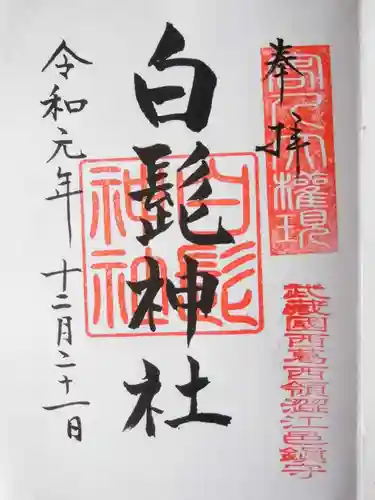 奉拝
客人大權現
武藏國西葛西領澀江邑鎮守
白髭神社
白髭
神社
令和元年 十二月二十一日